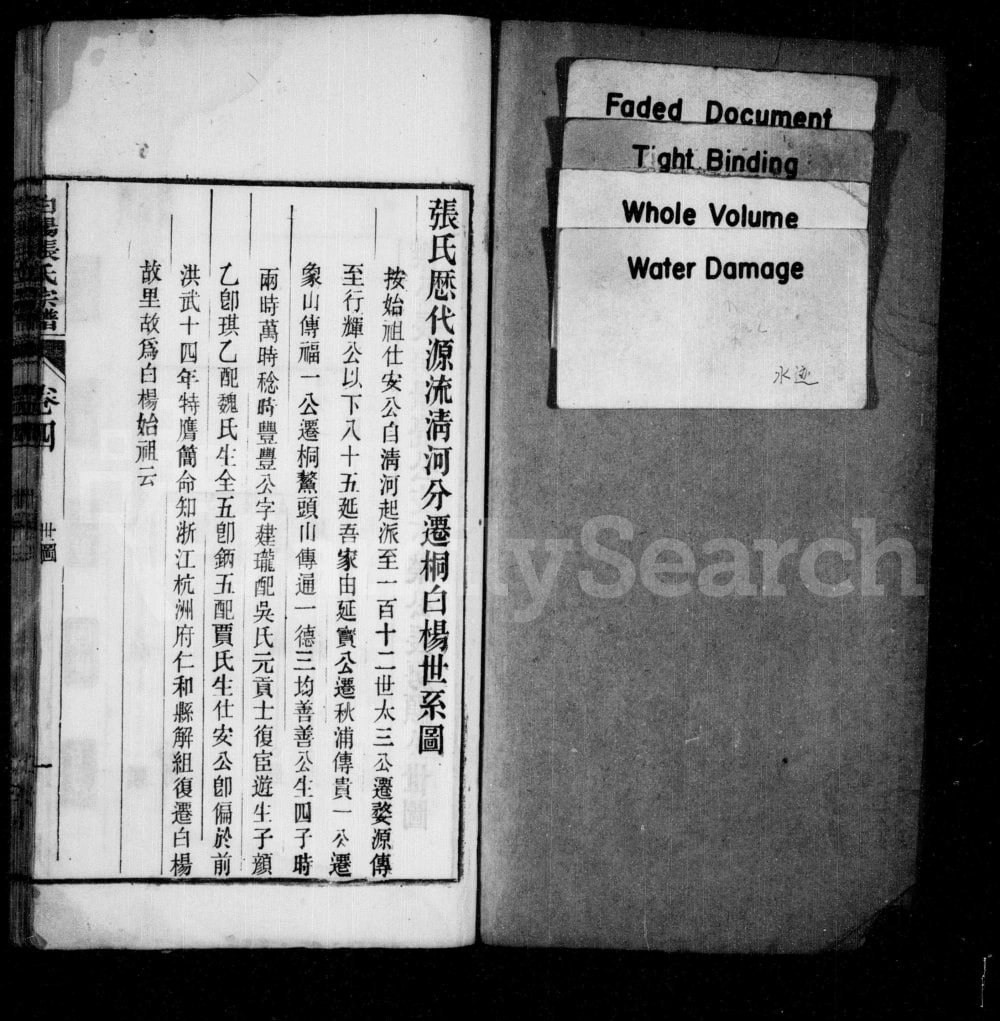 張氏歷代源流清河分遷桐白楊世系圖
按始祖仕安公自清河起派至一百十二世太三公遷婺源傳
至行輝公以下八十五延吾家由延實公遷秋浦傳貴一公遷
象山傳福一公遷桐鰲頭山傳通一德三均善善公生四子時
兩時萬時稔時豐豐公字建瓏配吳氏元貢士復宦遊生子顏
乙卽琪乙配魏氏生全五卽鈵五配賈氏生仕安公卽偏於前
洪武十四年特膺簡命知浙江杭洲府仁和縣解組復遷白楊
故里故爲白楊始祖云
白楊張氏宗譜
卷四
世圖
一
Faded Document
Tight Binding
Whole Volume
Water Damage
水迹